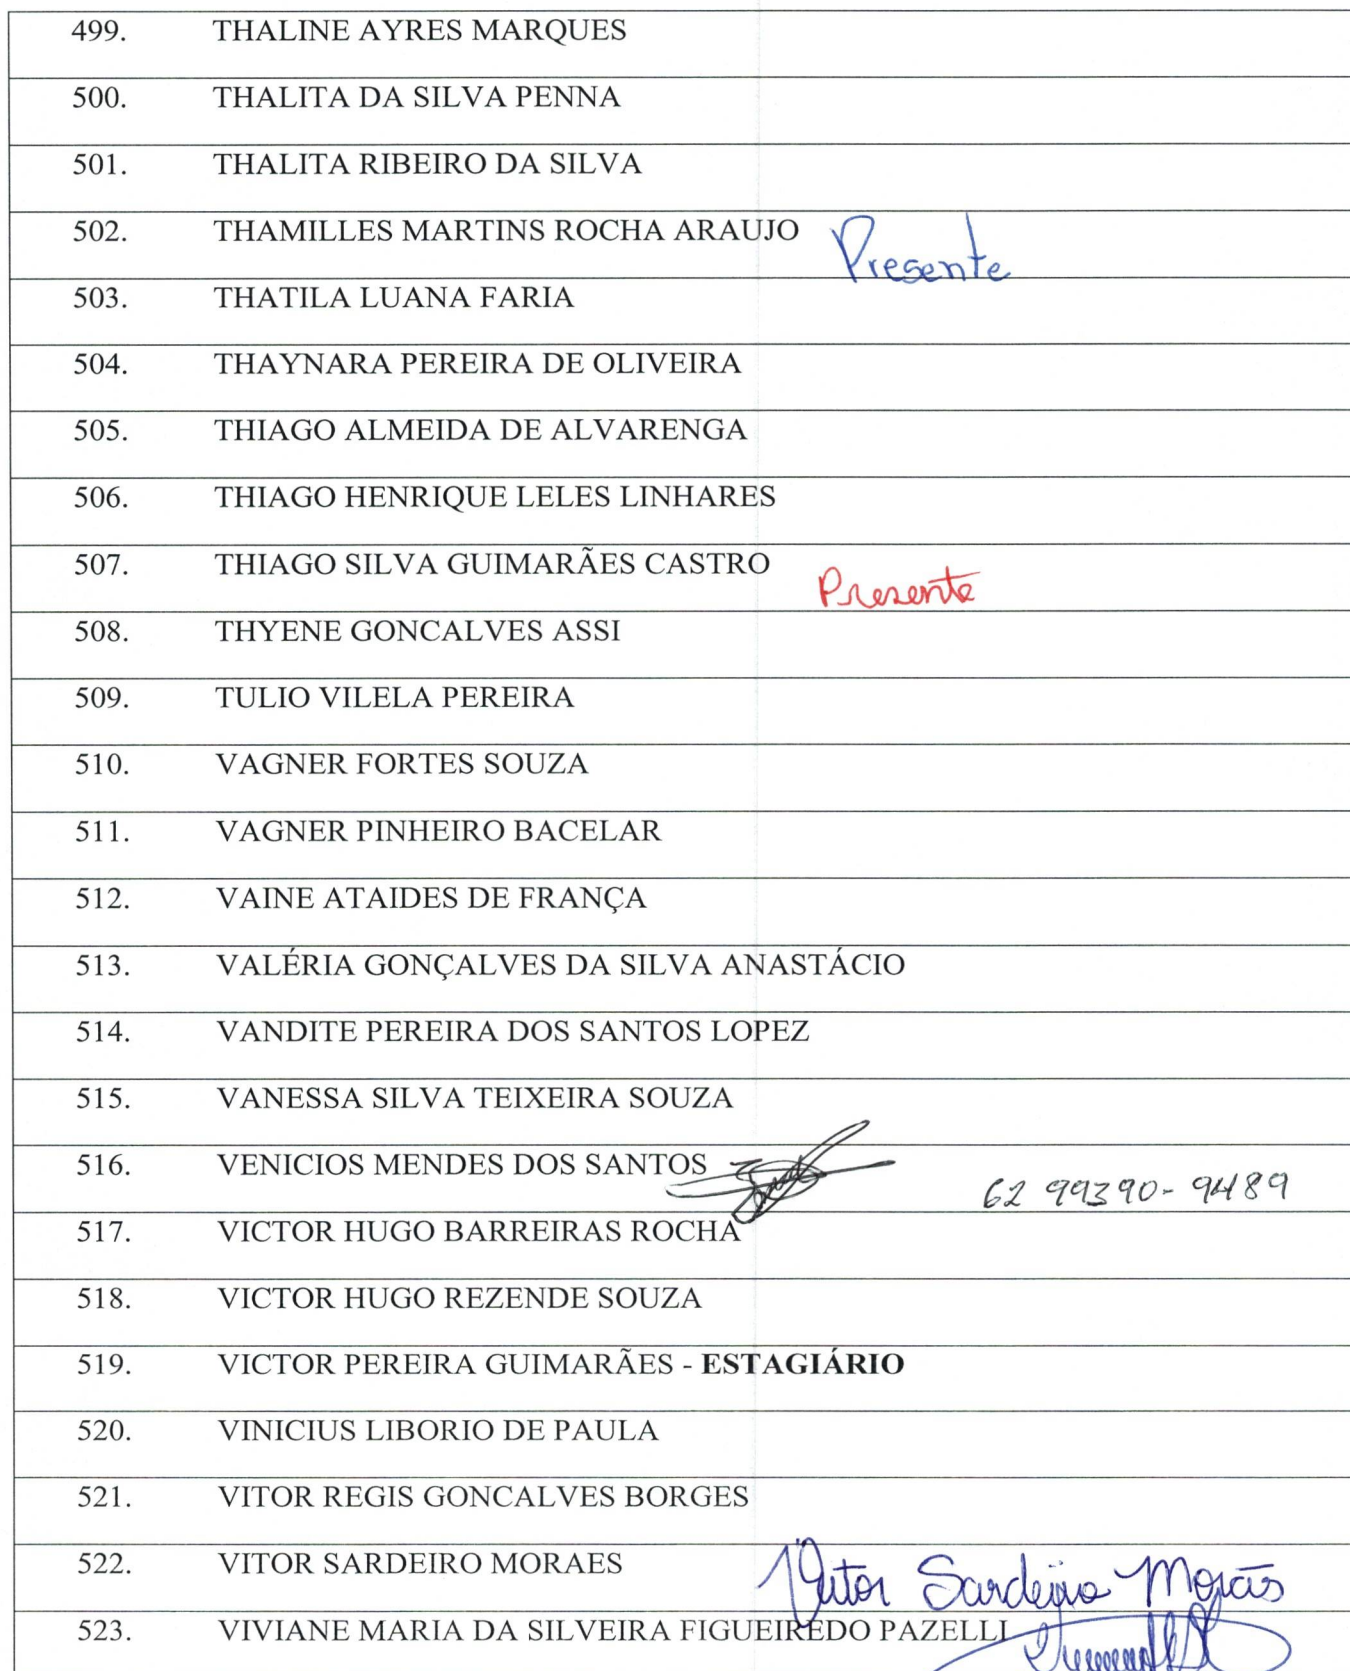 499. THALINE AYRES MARQUES
500. THALITA DA SILVA PENNA
501. THALITA RIBEIRO DA SILVA
502. THAMILLES MARTINS ROCHA ARAUJO Presente
503. THATILA LUANA FARIA
504. THAYNARA PEREIRA DE OLIVEIRA
505. THIAGO ALMEIDA DE ALVARENGA
506. THIAGO HENRIQUE LELES LINHARES
507. THIAGO SILVA GUIMARÃES CASTRO Presente
508. THYENE GONCALVES ASSI
509. TULIO VILELA PEREIRA
510. VAGNER FORTES SOUZA
511. VAGNER PINHEIRO BACELAR
512. VAINE ATAIDES DE FRANÇA
513. VALÉRIA GONÇALVES DA SILVA ANASTÁCIO
514. VANDITE PEREIRA DOS SANTOS LOPEZ
515. VANESSA SILVA TEIXEIRA SOUZA
516. VENICIOS MENDES DOS SANTOS 62 99390-9489
517. VICTOR HUGO BARREIRAS ROCHA
518. VICTOR HUGO REZENDE SOUZA
519. VICTOR PEREIRA GUIMARÃES - ESTAGIÁRIO
520. VINICIUS LIBORIO DE PAULA
521. VITOR REGIS GONCALVES BORGES
522. VITOR SARDEIRO MORAES Vitor Sardeiro Moraes
523. VIVIANE MARIA DA SILVEIRA FIGUEIREDO PAZELLI